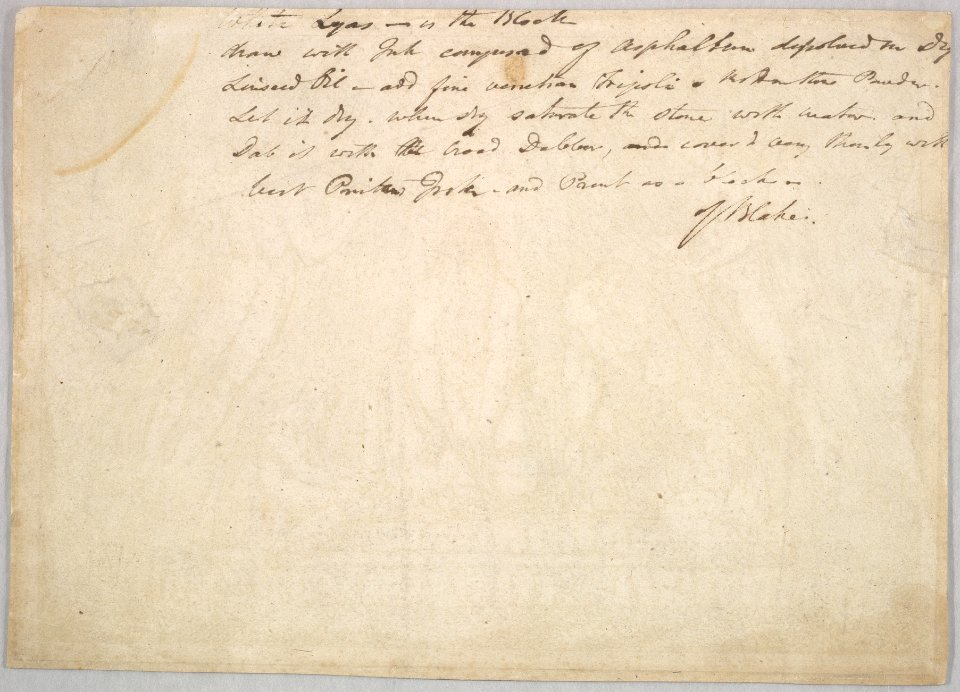 White Lyas – is the Block
draw with Ink composed of Asphaltum dissolved in dry
Linseed Oil – add fine venetian Tripoli & Rotten Stone Powder.
Let it dry. when dry saturate the stone with water and
Dab it with the broad Dabber, and cover it very thinly with
best Printers Ink – and Print as a block –
of Blake.